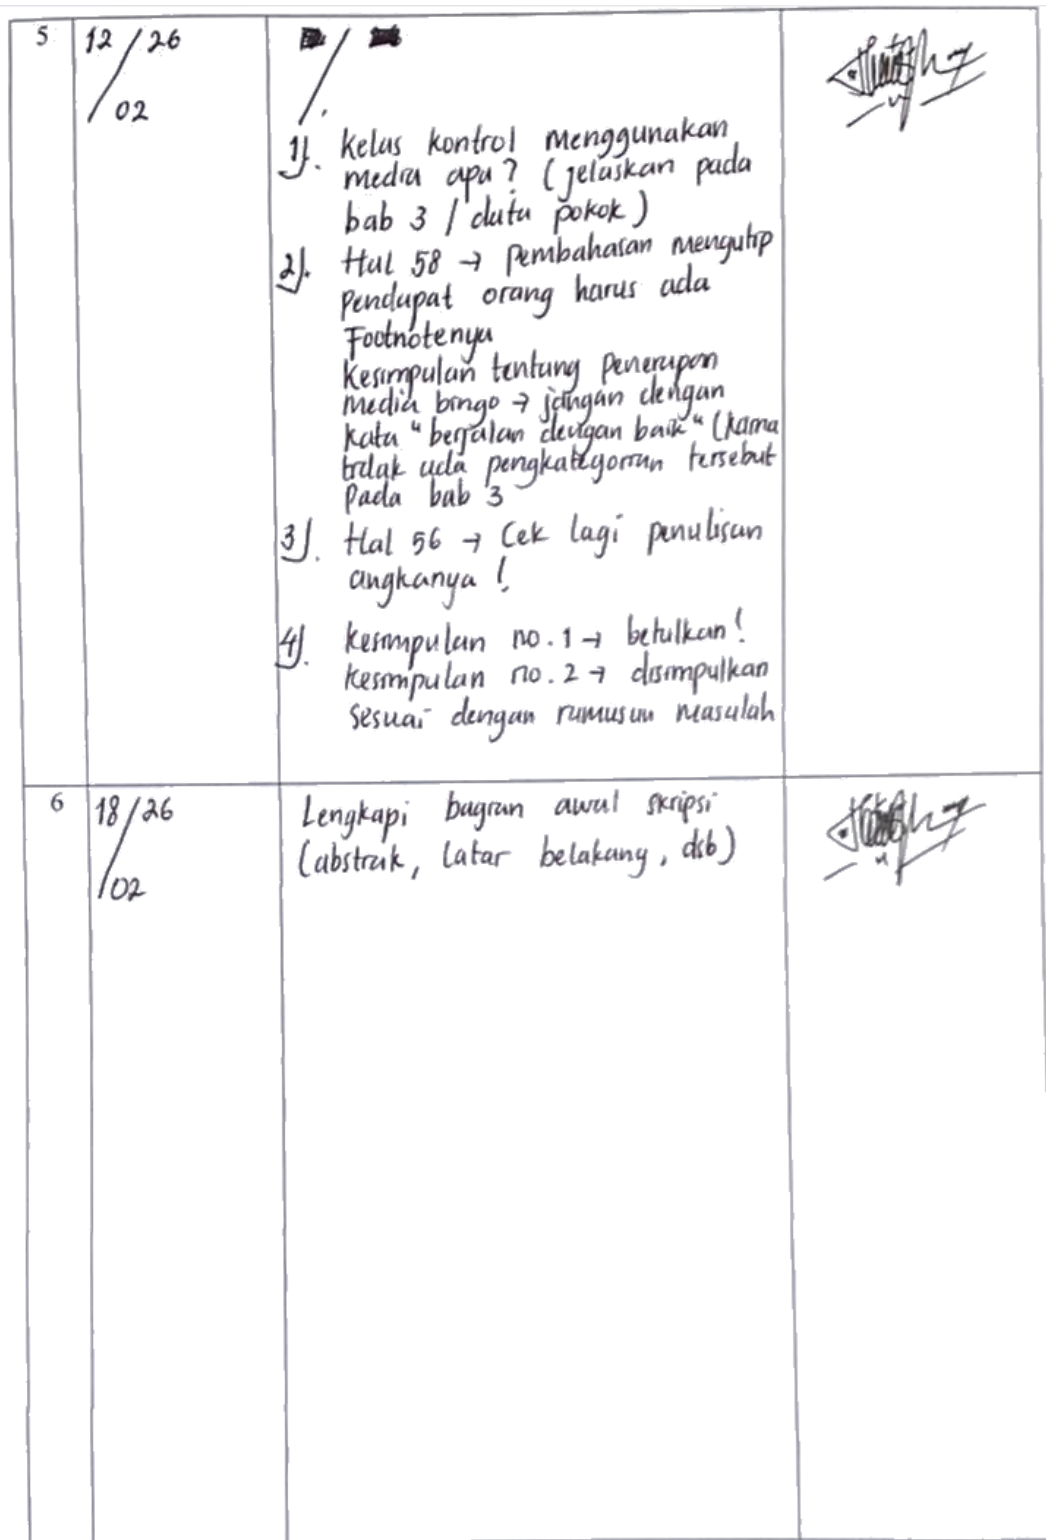 5
12/26
/02
1). Kelas kontrol menggunakan
media apa? (jelaskan pada
bab 3 / data pokok)
2). Hal 58 → Pembahasan mengutip
pendapat orang harus ada
Footnotenya
Kesimpulan tentang penerapan
media bingo → jangan dengan
kata "berjalan dengan baik" (karna
tidak ada pengkategorian tersebut
Pada bab 3
3). Hal 56 → Cek lagi penulisan
angkanya !
4). Kesimpulan no. 1 → betulkan !
Kesimpulan no. 2 → disimpulkan
sesuai dengan rumusan masalah
6
18/26
/02
Lengkapi bagian awal skripsi
(abstrak, latar belakang, dsb)